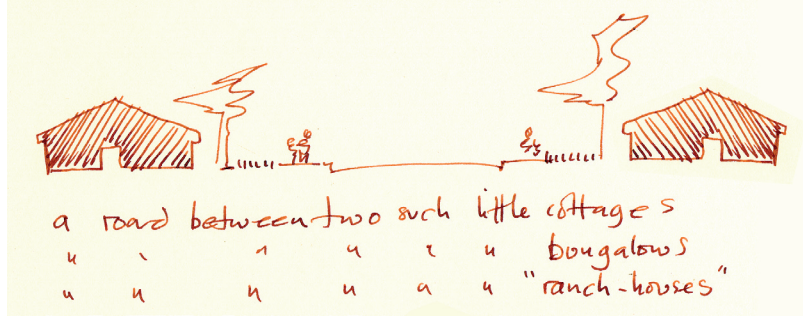 a road between two such little cottages
" " " " " " bongalows
" " " " " " "ranch-houses"